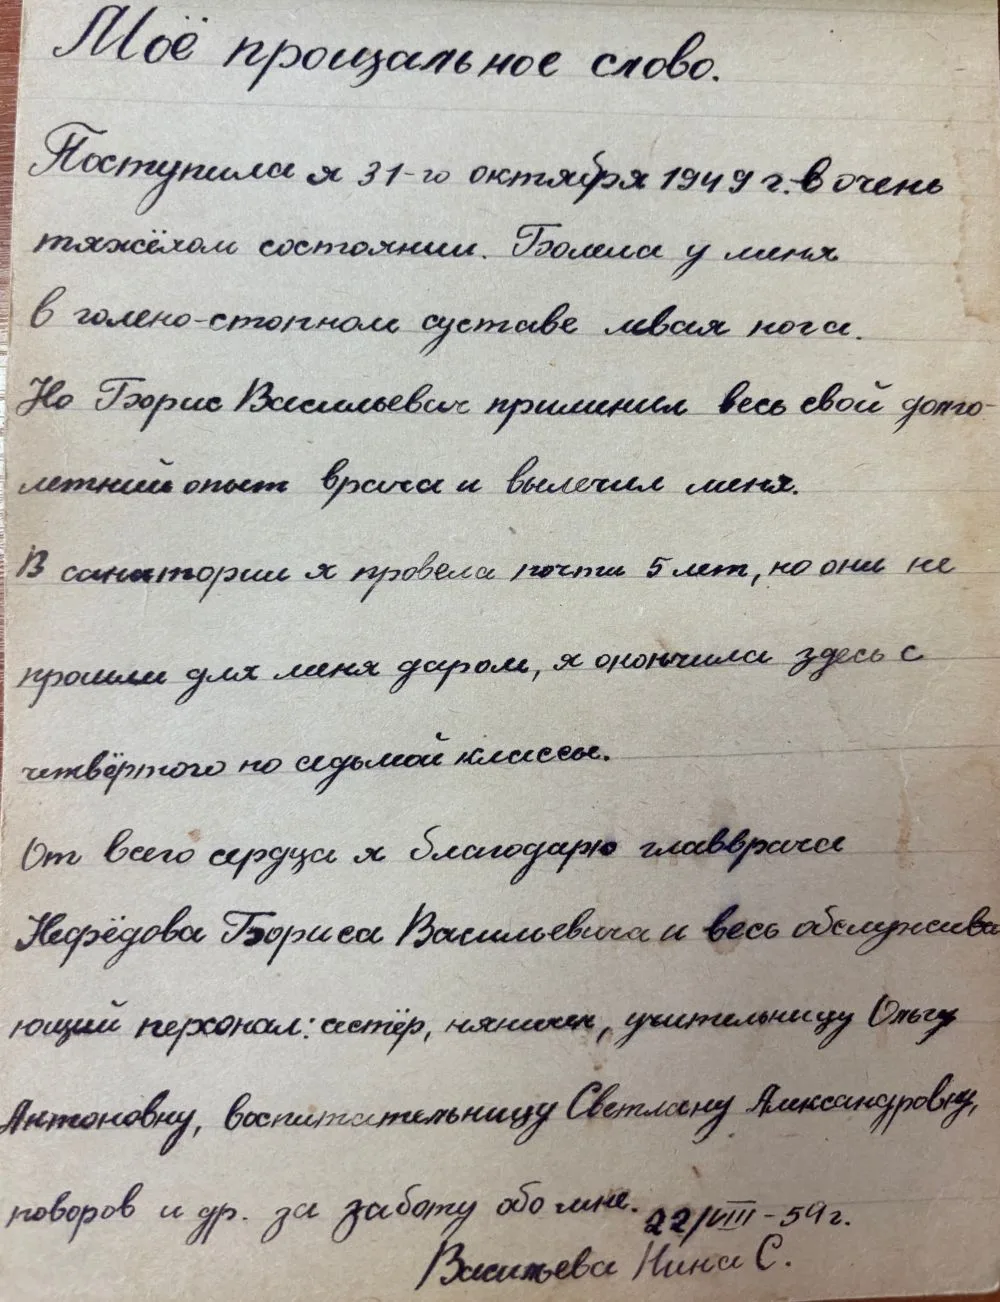 Моё прощальное слово.
Поступила я 31-го октября 1949 г. в очень
тяжёлом состоянии. Болела у меня
в голено-стопном суставе левая нога.
Но Борис Васильевич применил весь свой долго-
летний опыт врача и вылечил меня.
В санатории я провела почти 5 лет, но они не
прошли для меня даром, я окончила здесь с
четвёртого по седьмой классы.
От всего сердца я благодарю главврача
Нефёдова Бориса Васильевича и весь обслужива
ющий персонал: сестёр, нянечек, учительницу Ольгу
Антоновну, воспитательницу Светлану Александровну,
поворов и др. за заботу обо мне. 22/VIII-54г.
Васильева Нина С.